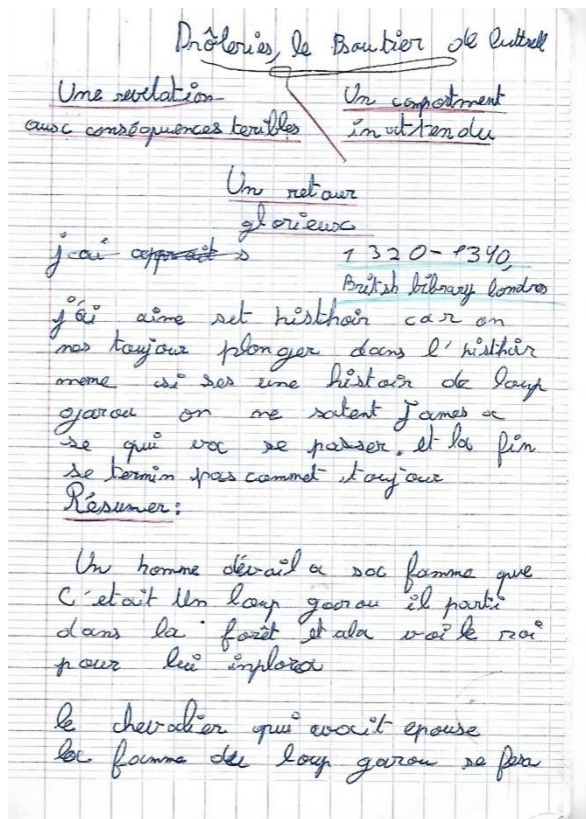 Drôleries, le Psautier de Luttrell
Une revelation
aux conséquences teribles
Un comportment
inattendu
Un retour
glorieux
j'ai s
1320-1340,
British bibrary londres
j'ai aime set histhoir car on
nos toujour plonger dans l'histhoir
meme si ses une histoir de loup
garou on ne satent James a
se qui va se passer. et la fin
se termin pas commet toujour
Résumer:
Un homme dévail a sa famme que
C'etait Un loup garou il parti
dans la forêt et ala voi le roi
pour lui inplora
le chevalier qui avait epouse
la famme du loup garou se fesa